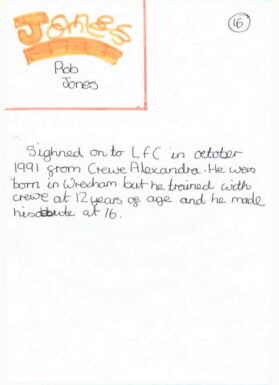 Jones
16
Rob
Jones
Sighned on to LFC in october
1991 from Crewe Alexandra. He was
born in Wrexham but he trained with
crewe at 12 years of age and he made
his debute at 16.